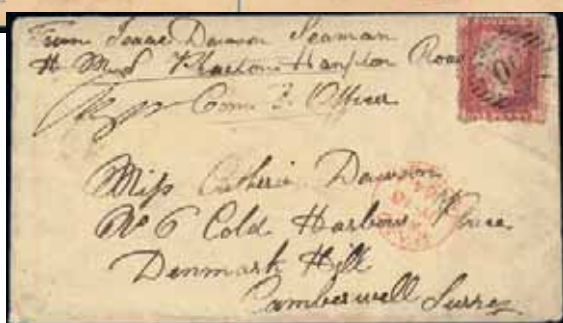 From Isaac Dawson Seaman
H. M. S. Hampton Road
Comg Officer
Miss Catherin Dawson
No 6 Cold Harbour Place
Denmark Hill
Camberwell Surrey